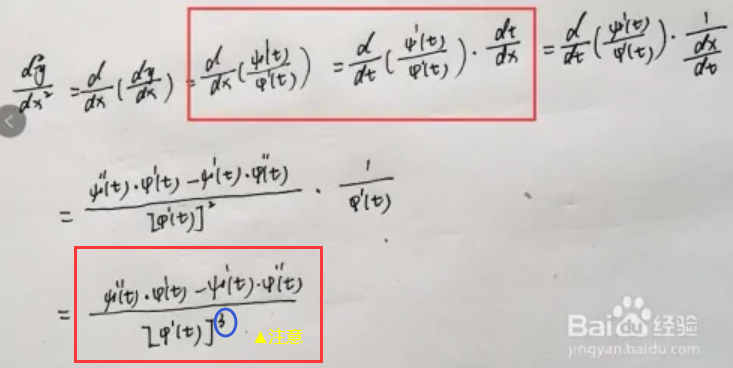 d²y/dx² = d/dx(dy/dx) = d/dx(ψ'(t)/φ'(t)) = d/dt(ψ'(t)/φ'(t)) · dt/dx = d/dt(ψ'(t)/φ'(t)) · 1/(dx/dt)
= (ψ''(t)·φ'(t) − ψ'(t)·φ''(t))/[φ'(t)]² · 1/φ'(t)
= (ψ''(t)·φ'(t) − ψ'(t)·φ''(t))/[φ'(t)]³
▲注意
Baidu经验
jingyan.baidu.com